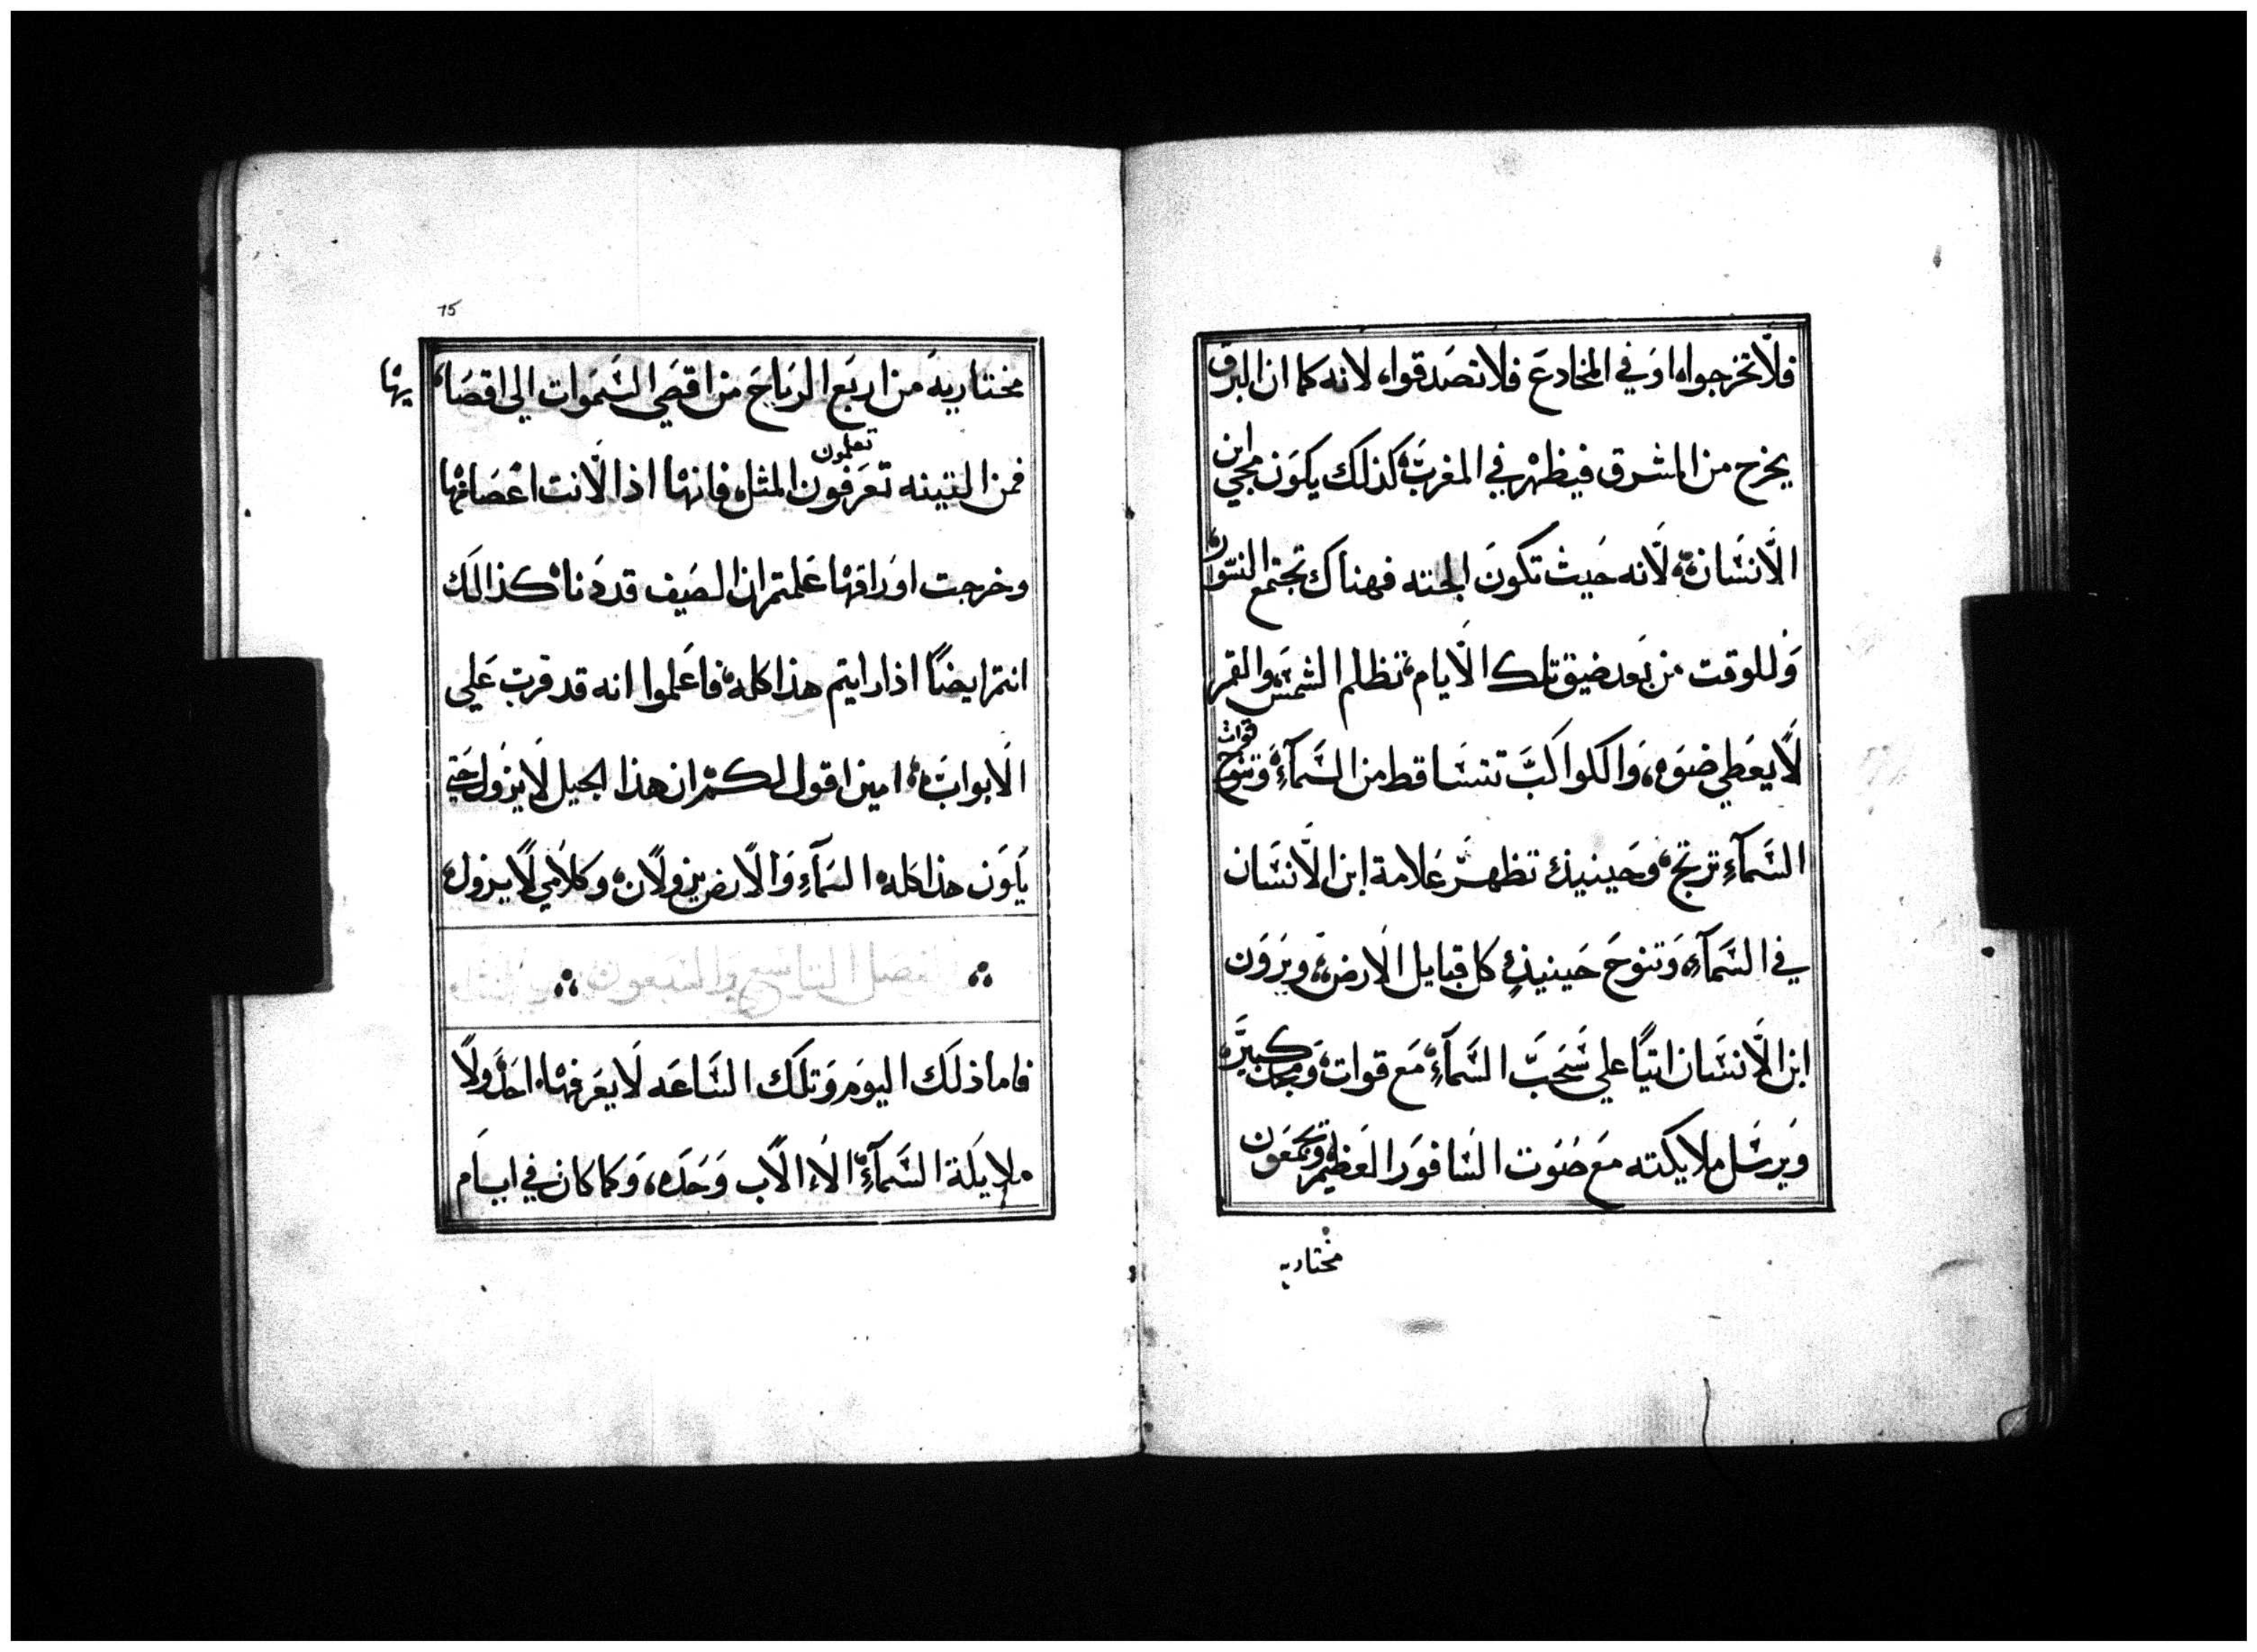 فلا تخرجواه اوَ في المخادعَ فلا تصَدقواه لانه كما ان البرق
يخرج من المشرق فيظهر في المغربَ كذلك يكوَن مجي ابن
الاَنسَان لاَنه حَيث تكونَ الجثه فهناك تجتمع النسور
وَللوقت من بَعد ضيق تلك الاَيام تظلم الشمسَ والقمر
لاَ يعَطي ضوَه وَالكواكبَ تتسَاقط من السَمآء وَتنوح قوات
السَمآء ترتج وحَينيذ تظهرَ عَلامة ابن الاَنسَان
في السَمآء وَتنوحَ حَينيذٍ كل قبايل الاَرض ويرَوَن
ابن الاَنسَان اتيًا علي سَحَبَ السَمآء مَع قوات وَمجد كبيرَه
وَيرسَل ملايكته معَ صَوَت السَافوَر العَظيم ويجمَعَون
مختاريه
75
مختاريهَ من اربعَ الرياحَ من اقصَي السَمَوات الي اقصَا يها
فمن التينه تعَرَفون تعلمون المثل فانها اذا لاَنت اغصَانها
وخرجت اوَراقها عَلمتم ان الصَيف قد دَنا كذالكَ
انتم ايضًا اذا رايتم هذا كله فاعَلموا انه قد قربَ عَلي
الاَبوابَ امين اقول لكم ان هذا الجيل لاَ يزوَل حَتي
يَكوَن هذا كله السَمآء وَالاَرض يزولاَن وَكلاَمي لاَ يزول
الفصَل التاسَع وَالسَبعون
فاما ذلكَ اليوَم وَتلكَ السَاعَه لاَ يعَرفها احَدٌ وَلاَ
ملايكَة السَمآء الاَ الاَب وَحَدَه وَكما كان في ايَام